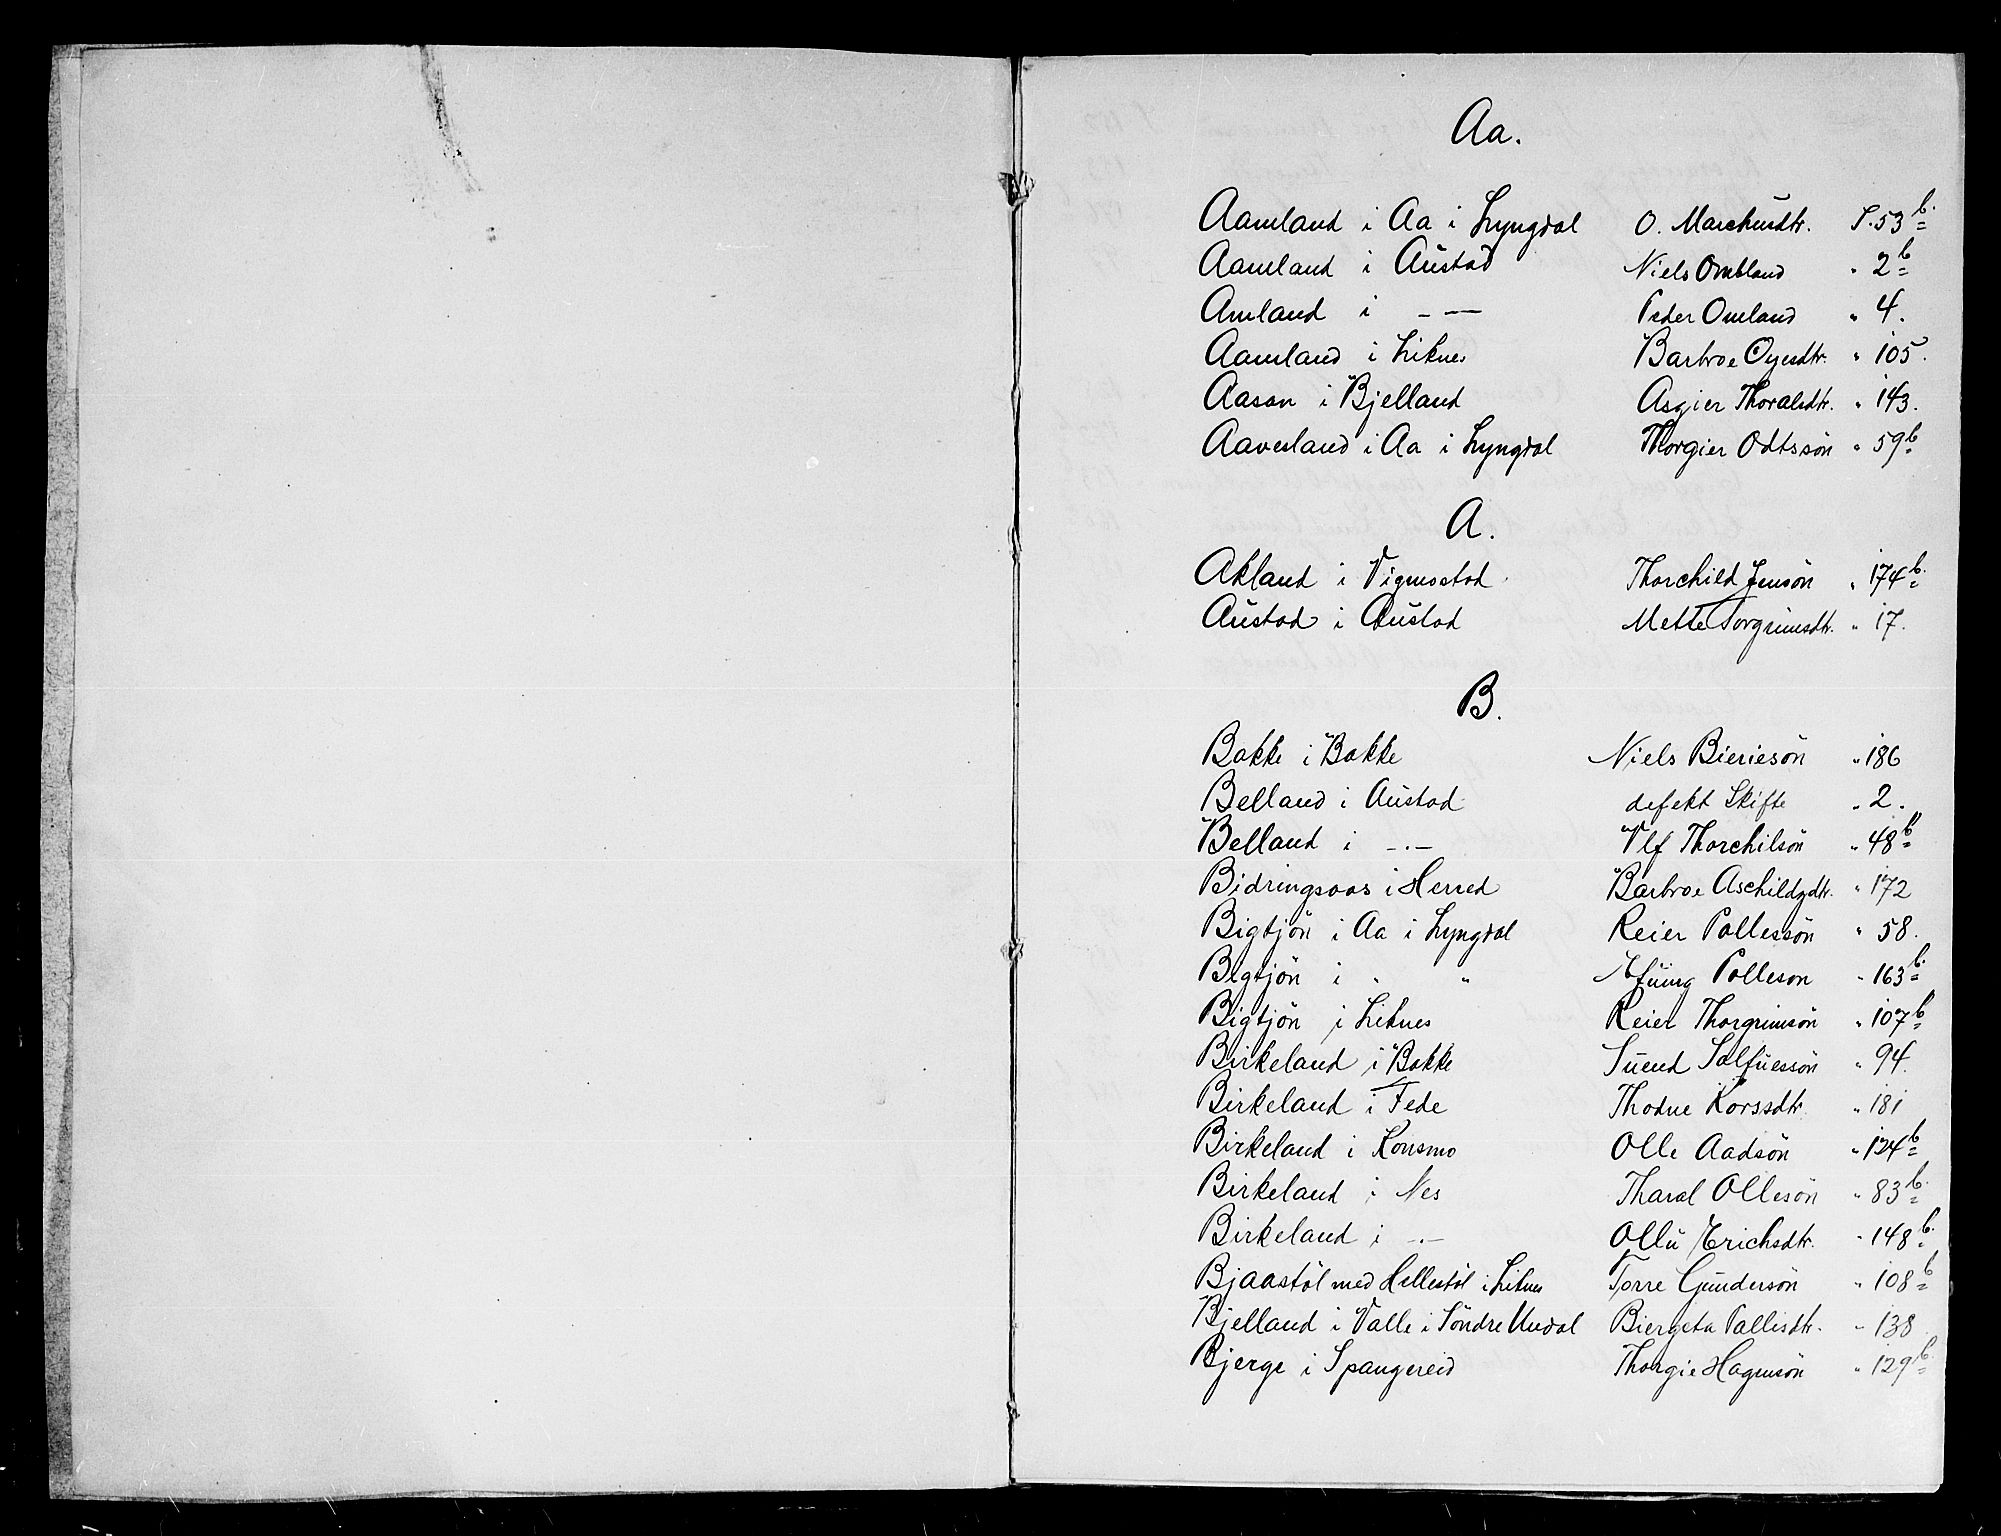 Aa.
Aamland i Aa i Lyngdal O. Marchusdtr. S. 53b.
Aamland i Austad Niels Ombland " 2b
Amland i - — Peder Omland " 4.
Aamland i Liknes Barbroe Oyesdtr. " 105.
Aasan i Bjelland Asgier Thoralsdtr. " 143.
Aavesland i Aa i Lyngdal Thorgier Odtssön " 59b
A.
Akland i Vigmostad Thorchild Jensön " 174b.
Austad i Austad Mette Torgrimsdtr. " 17.
B.
Bakke i Bakke Niels Bieriesön " 186
Belland i Austad defekt Skifte " 2.
Belland i -.- Ulf Thorchilsön " 48b
Bidringsaas i Herred Barbroe Aschildzdtr. " 172
Bigtjön i Aa i Lyngdal Reier Pallessön " 58.
Bigtjön i " " Palleson " 163b.
Bigtjön i Liknes Reier Thorgrimsön " 107b
Birkeland i Bakke Suend Salfuessön " 94.
Birkeland i Fede Thodne Korssdtr. " 181
Birkeland i Konsmo Olle Aadsön " 124b
Birkeland i Nes Tharal Ollesön " 83b.
Birkeland i -.- Ollu Erichsdtr. " 148b.
Bjaastöl med Hellestöl i Liknes Torre Gundersön " 108b
Bjelland i Valle i Söndre Undal Biergeta Pallesdtr. " 138
Bjerge i Spangereid Thorgie Hagensön " 129b.